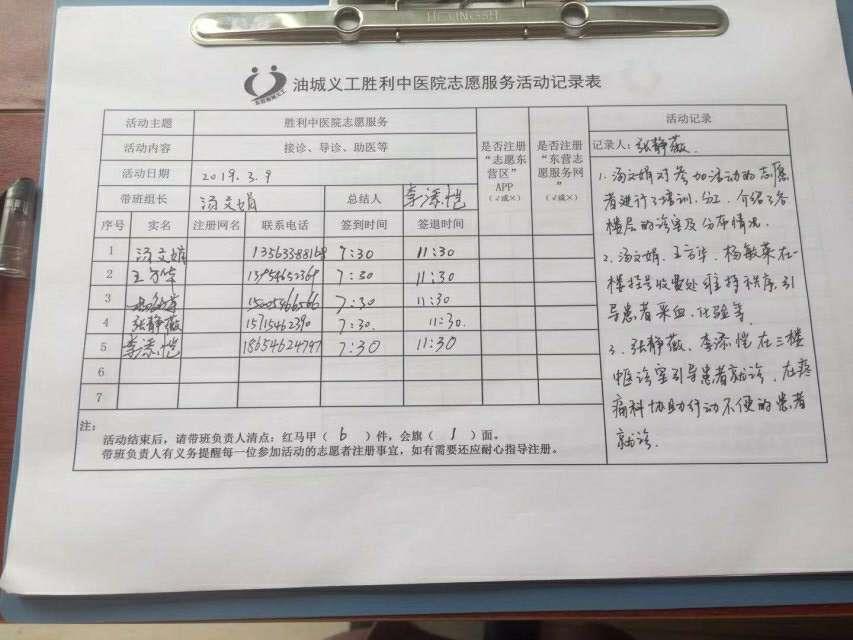 油城义工胜利中医院志愿服务活动记录表
活动主题 胜利中医院志愿服务 是否注册“志愿东营区”APP（√或×） 是否注册“东营志愿服务网”（√或×） 活动记录
活动内容 接诊、导诊、助医等
记录人：张静薇
活动日期 2019.3.9
带班组长 汤文娟 总结人 李添恺
序号 实名 注册网名 联系电话 签到时间 签退时间
1 汤文娟 13563388168 7:30 11:30
2 王万华 13954652369 7:30 11:30
3 7:30 11:30
4 张静薇 15715462390 7:30. 11:30.
5 李添恺 18654624747 7:30 11:30
6
7
1.汤文娟对参加活动的志愿
者进行了培训、分工，介绍了各
楼层的诊室及分布情况.
2、汤文娟、王万华、杨敏英在一
楼挂号收费处维持秩序，引
导患者采血、化验等.
3、张静薇、李添恺在三楼
中医诊室引导患者就诊，在疼
痛科协助行动不便的患者
就诊.
注：
活动结束后，请带班负责人清点：红马甲（ 6 ）件，会旗（ 1 ）面。
带班负责人有义务提醒每一位参加活动的志愿者注册事宜，如有需要还应耐心指导注册。